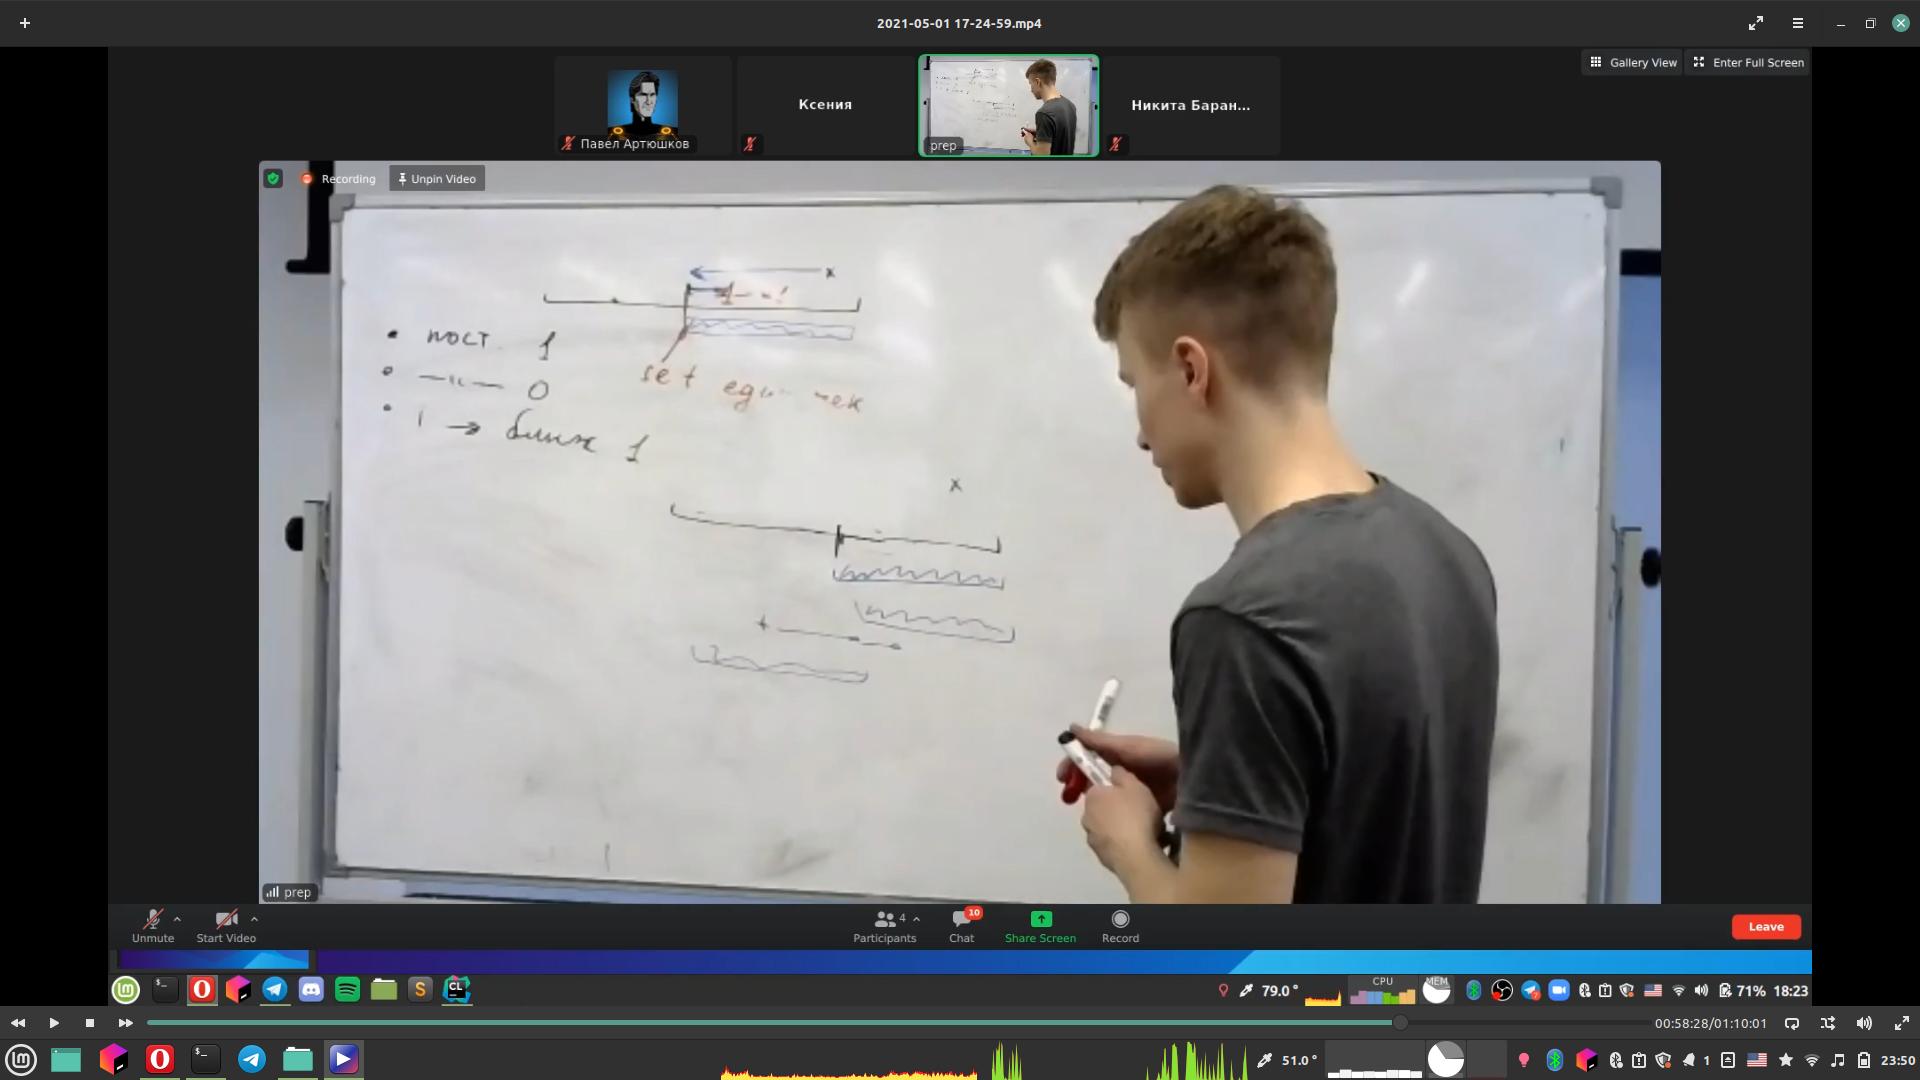 2021-05-01 17-24-59.mp4
Gallery View
Enter Full Screen
Павел Артюшков
Ксения
prep
Никита Баран...
Recording
Unpin Video
x
1
пост. 1
0
set
→ ближ 1
x
prep
Unmute
Start Video
4
Participants
10
Chat
Share Screen
Record
Leave
79.0°
CPU
MEM
71%
18:23
00:58:28/01:10:01
51.0°
1
23:50